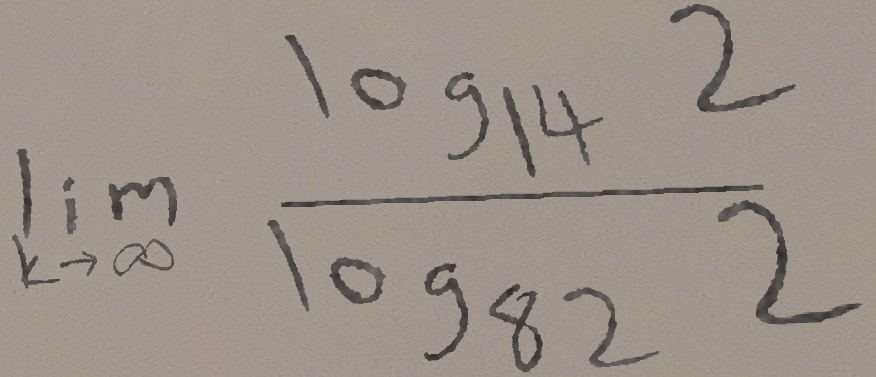 lim_{k→∞} \frac{log_{14} 2}{log_{82} 2}